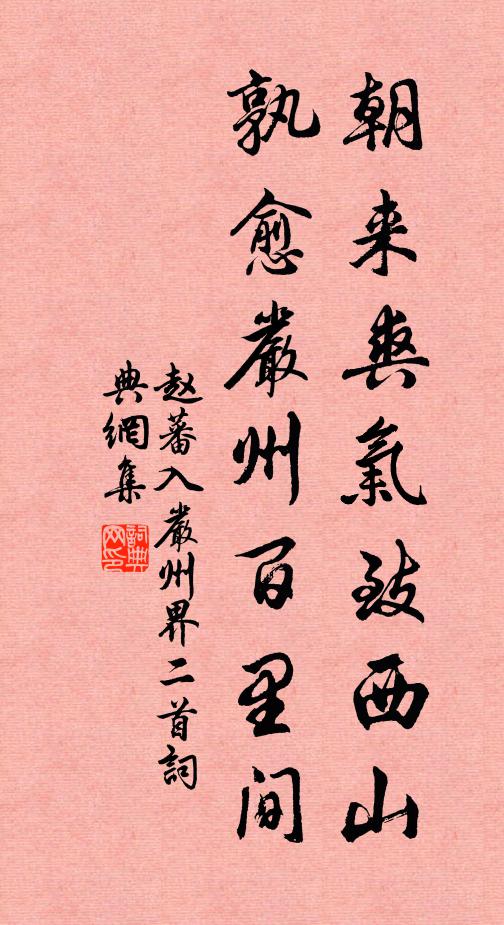 朝来爽氣致西山
孰愈嚴州百里間
赵蕃入嚴州界二首詞
典網集
詞典
网印